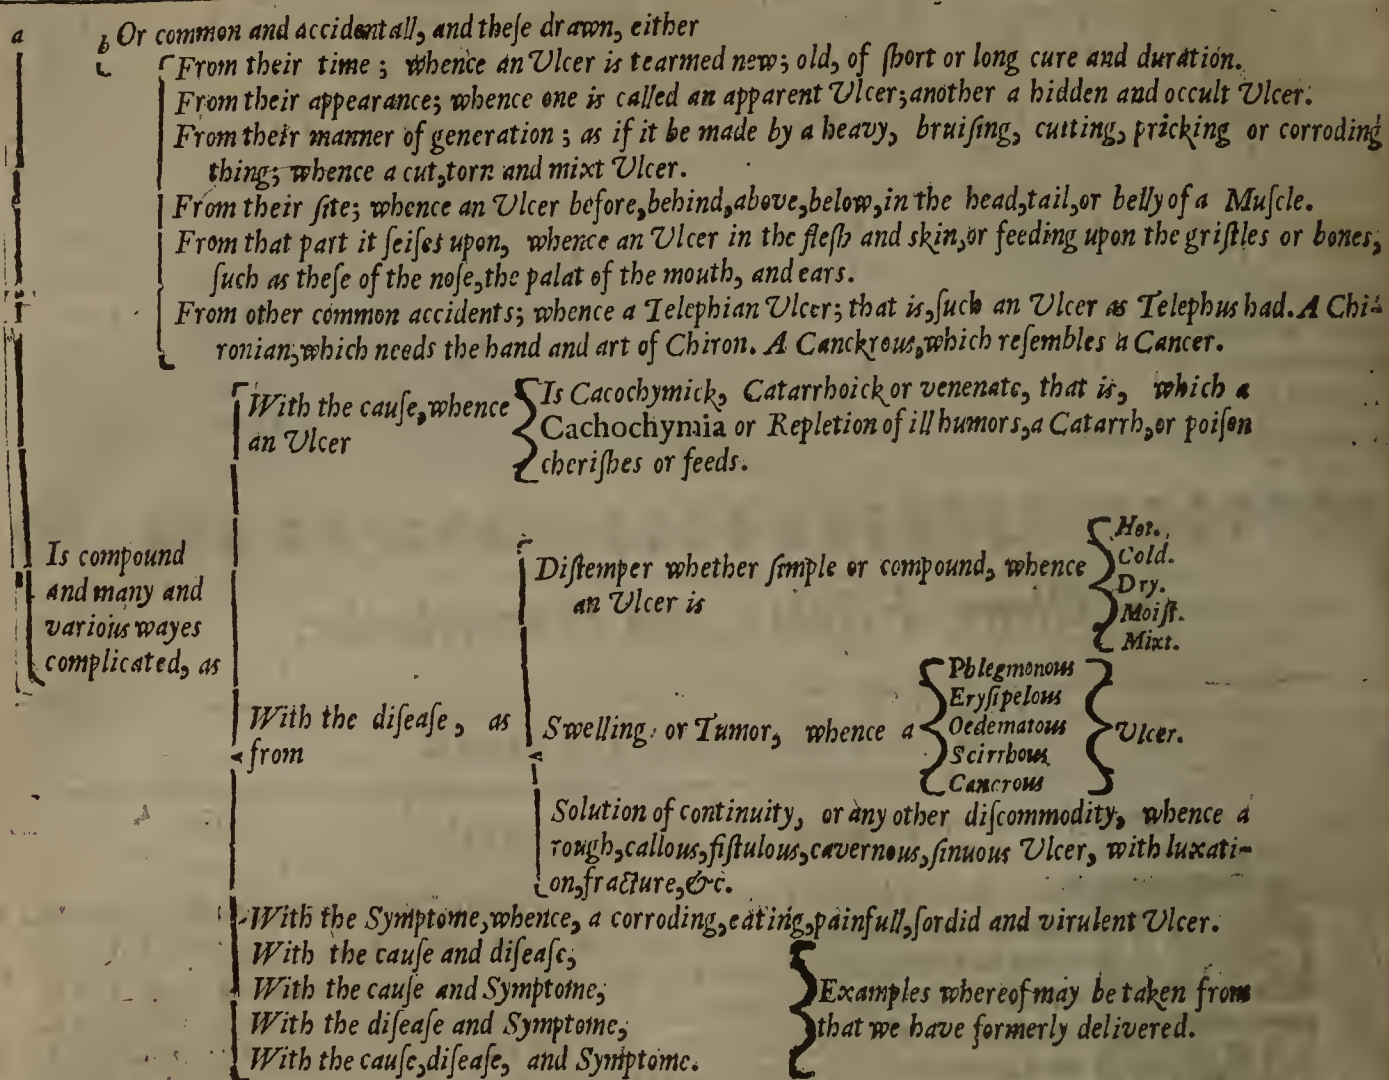 a
b Or common and accidentall, and theſe drawn, either
From their time ; whence an Ulcer is tearmed new; old, of ſhort or long cure and duration.
From their appearance; whence one is called an apparent Ulcer; another a hidden and occult Ulcer.
From their manner of generation ; as if it be made by a heavy, bruiſing, cutting, pricking or corroding
thing; whence a cut, torn and mixt Ulcer.
From their ſite; whence an Ulcer before, behind, above, below, in the head, tail, or belly of a Muſcle.
From that part it ſeiſes upon, whence an Ulcer in the fleſh and skin, or feeding upon the griſtles or bones,
ſuch as theſe of the noſe, the palat of the mouth, and ears.
From other common accidents; whence a Telephian Ulcer; that is, ſuch an Ulcer as Telephus had. A Chi-
ronian, which needs the hand and art of Chiron. A Canckrous, which reſembles a Cancer.
Is compound
and many and
various wayes
complicated, as
With the cauſe, whence
an Ulcer
Is Cacochymick, Catarrhoick or venenate, that is, which a
Cachochymia or Repletion of ill humors, a Catarrh, or poiſon
cheriſhes or feeds.
With the diſeaſe, as
from
Diſtemper whether ſimple or compound, whence
an Ulcer is
Hot.
Cold.
Dry.
Moiſt.
Mixt.
Swelling or Tumor, whence a
Phlegmonous
Eryſipelous
Oedematous
Scirrhous
Cancrous
Ulcer.
Solution of continuity, or any other diſcommodity, whence a
rough, callous, fiſtulous, cavernous, ſinuous Ulcer, with luxati-
on, fracture, &c.
With the Symptome, whence, a corroding, eating, painfull, ſordid and virulent Ulcer.
With the cauſe and diſeaſe,
With the cauſe and Symptome,
With the diſeaſe and Symptome,
With the cauſe, diſeaſe, and Symptome.
Examples whereof may be taken from
that we have formerly delivered.